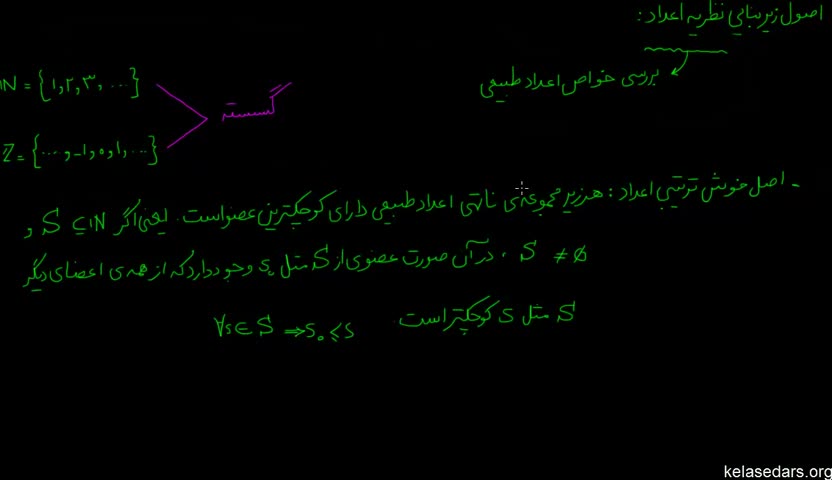 اصول زیربنایی نظریه اعداد :
بررسی خواص اعداد طبیعی
IN = {۱,۲,۳, ...}
گسسته
Z = {... و -۱,۰,۱, ...}
- اصل خوش ترتیبی اعداد : هر زیر مجموعه‌ی ناتهی اعداد طبیعی دارای کوچکترین عضو است. یعنی اگر S ⊆ IN و
S ≠ ∅ ، در آن صورت عضوی از S مثل s₀ وجود دارد که از همه ی اعضای دیگر
S مثل s کوچکتر است ∀s ∈ S ⇒ s₀ ≤ s
kelasedars.org